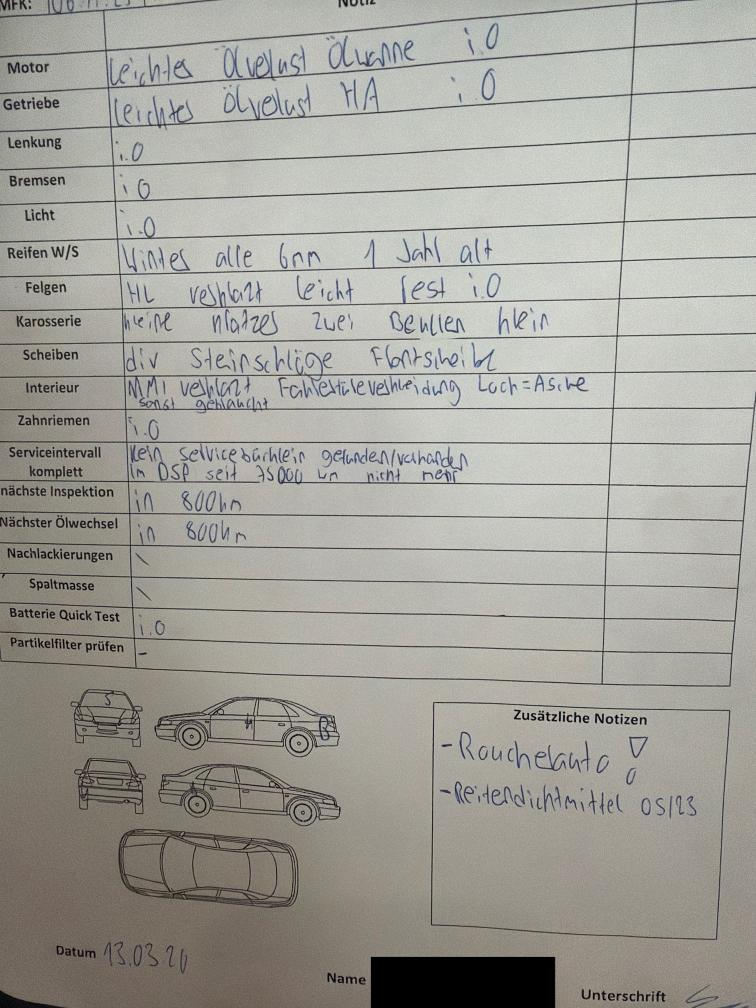 MFK:
Notiz
Motor leichtes Ölverlust Ölwanne i.O
Getriebe leichtes Ölverlust HA i.O
Lenkung i.O
Bremsen i O
Licht i.O
Reifen W/S Winter alle 6mm 1 Jahr alt
Felgen HL verkratzt leicht rest i.O
Karosserie kleine kratzer zwei Beulen klein
Scheiben div Steinschläge Frontscheibe
Interieur MMI verkratzt Fahrerstüleverkleidung Loch = Asche
sonst gebraucht
Zahnriemen i.O
Serviceintervall kein servicebüchlein gefunden/vorhanden
komplett im DSP seit 75000 km nicht mehr
nächste Inspektion in 800km
Nächster Ölwechsel in 800km
Nachlackierungen \
Spaltmasse \
Batterie Quick Test i.O
Partikelfilter prüfen -
S
B
Zusätzliche Notizen
- Raucherauto !
- Reifendichtmittel 05/23
Datum 13.03.20
Name
Unterschrift